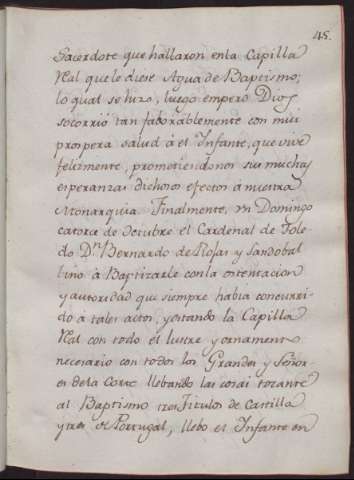 45.
Sacerdote que hallaron enla Capilla
Real que le diese Agua de Baptismo;
lo qual se hizo, luego empero Dios
socorrió tan faborablemente con mui
prospera salud à el Infante, que vive
felizmente, prometiendonos sus muchas
esperanzas dichosos efectos à nuestra
Monarquia. Finalmente, un Domingo
catorce de Octubre el Cardenal de Tole-
do Dn. Bernardo de Rojas y Sandobal
bino à Baptizarle con la ostentacion
y autoridad que siempre habia concurri-
do à tales actos, y estando la Capilla
Real con todo el lustre y ornamento
necesario con todos los Grandes y Señor-
es dela Corte llebando las cosas tocante
al Baptismo tres Titulos de Castilla
y tres de Portugal, llebo el Infante en